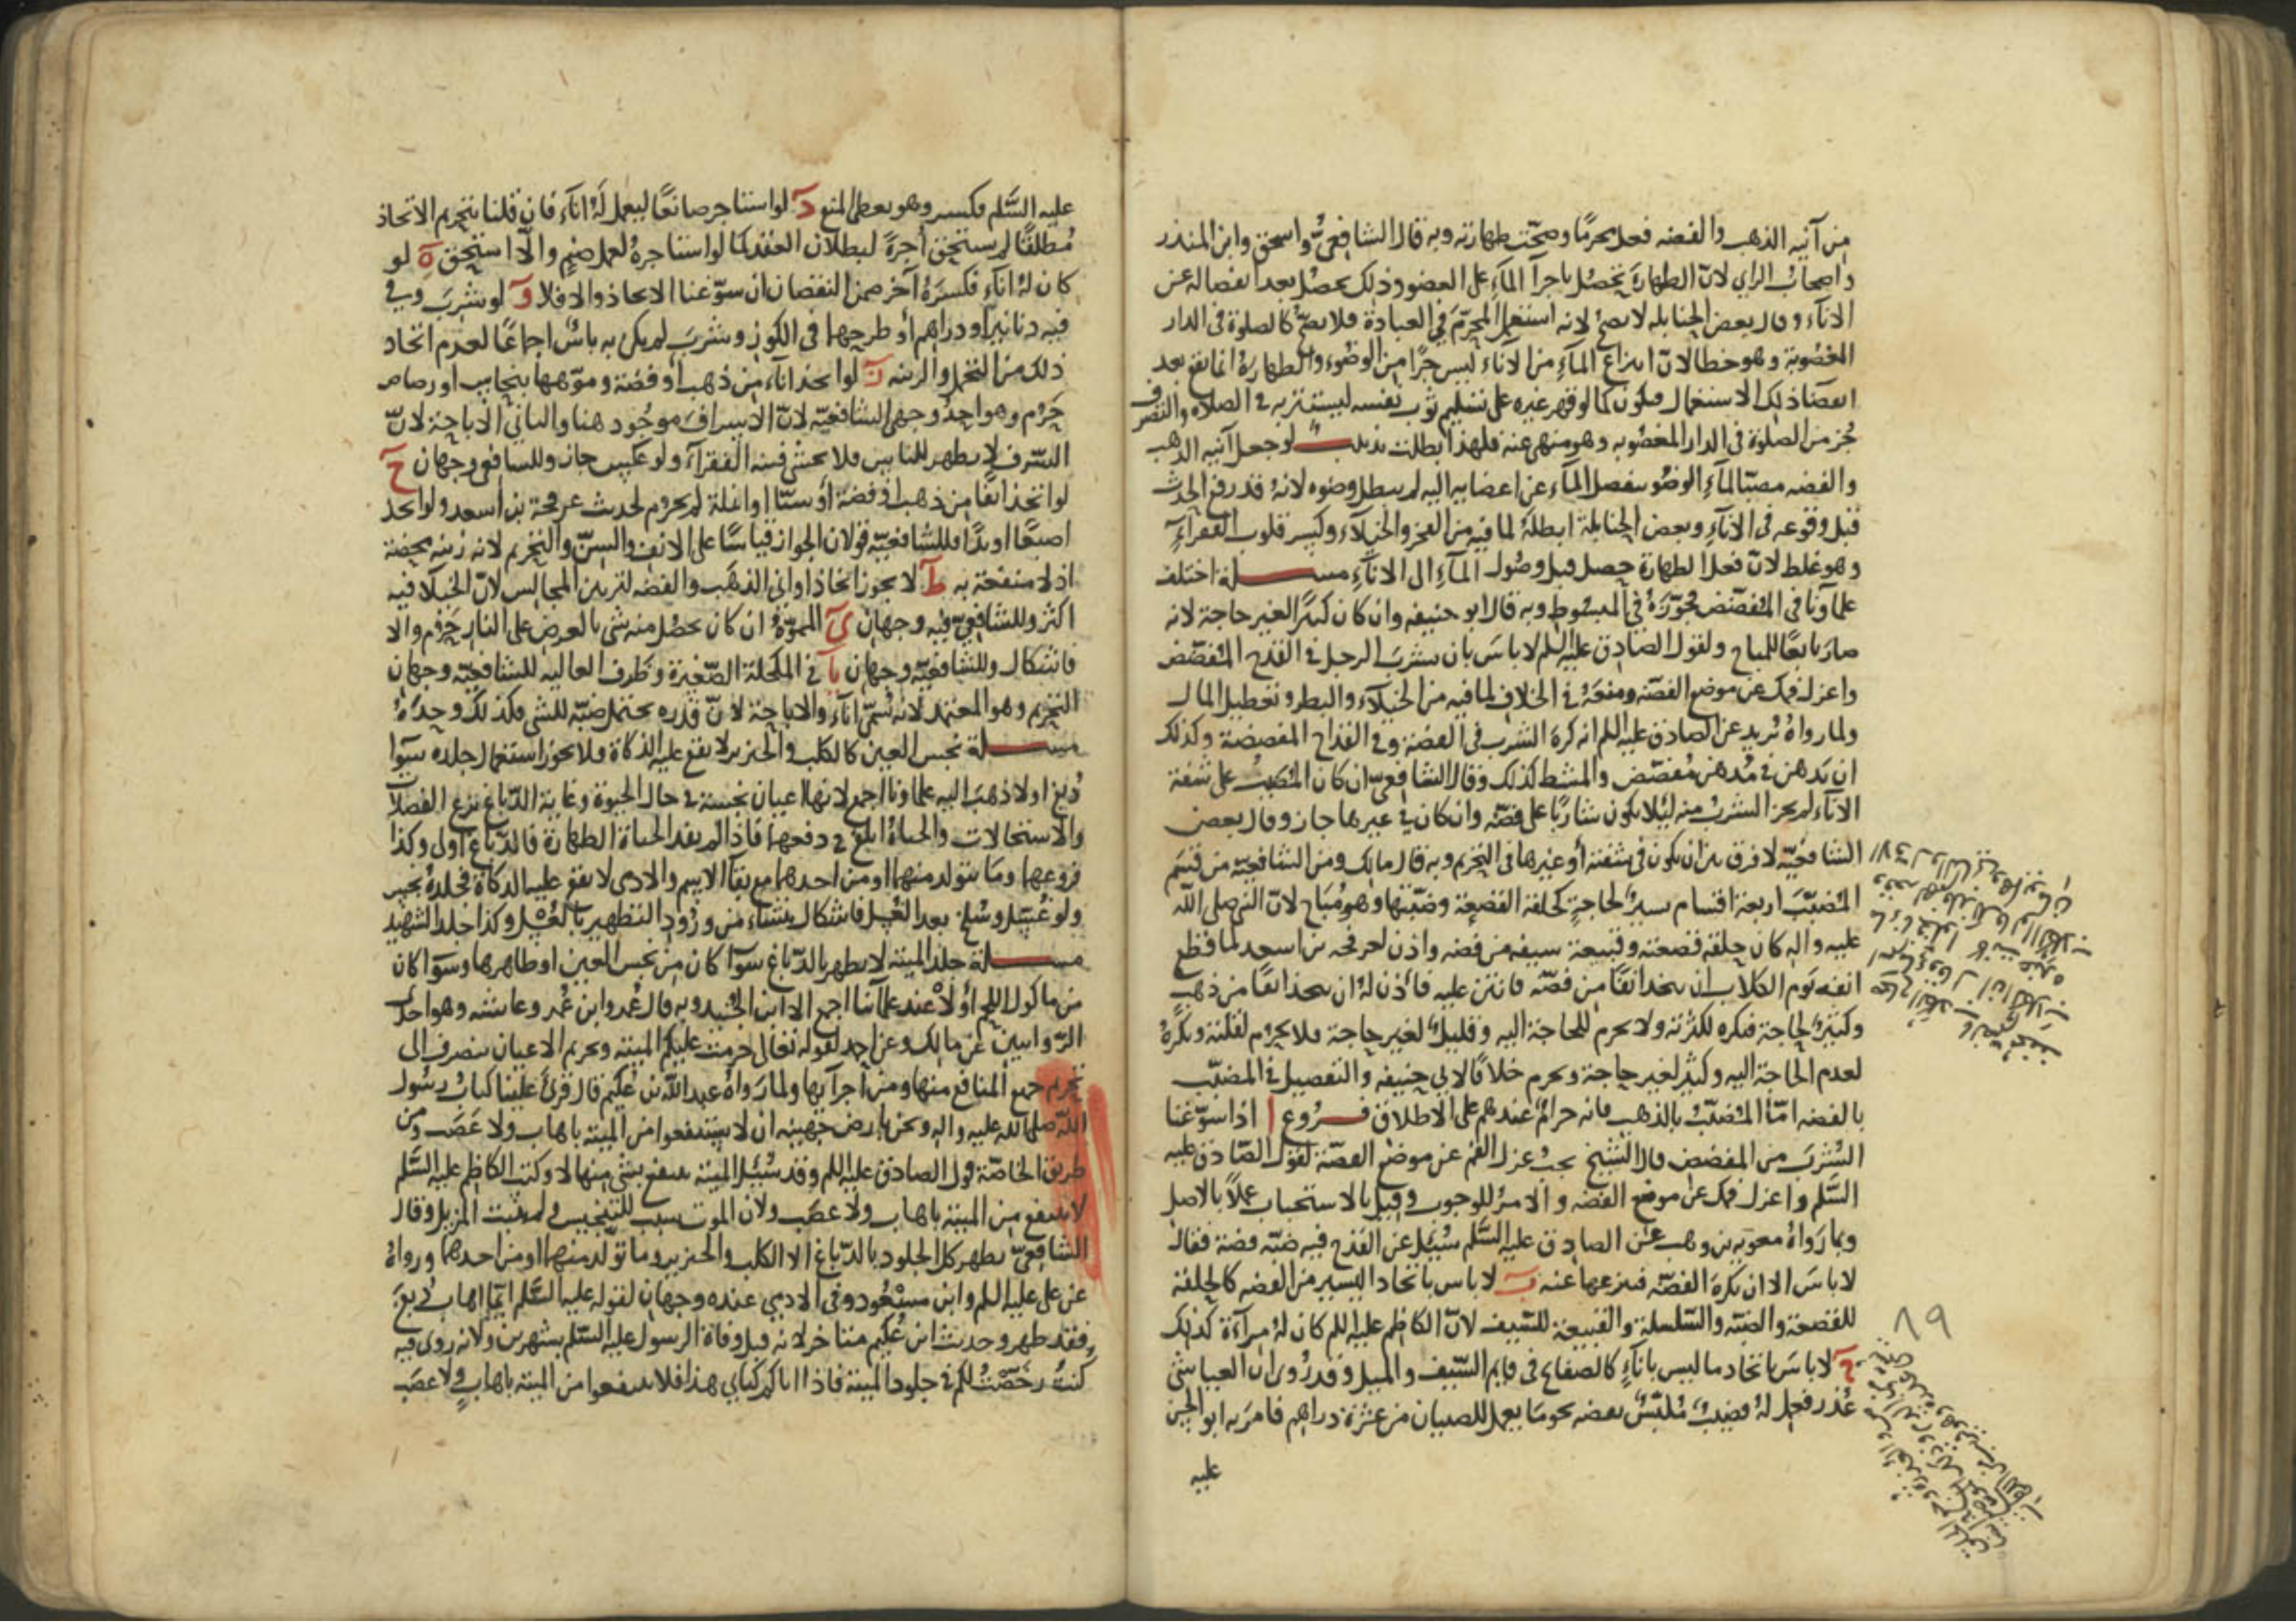 من آنيه الذهب والفضه فعل محرمًا وصحّت طهارته وبه قال الشافعيّ واسحق وابن المنذر
واصحاب الراي لانّ الطهارة تحصل باجرآ المآء على العضو وذلك يحصل بعد انفصاله عن
الانآء وقال بعض الحنابله لا يصح لانه استعمل المحرّم في العبادة فلا يصحّ كالصلوة في الدار
المغصوبة وهو خطا لانّ انتزاع المآء من الانآء ليس جزًا من الوضوء والطهارة انما يقع بعد
انقضا ذلك الاستعمال فيكون كما لو قهر غيره على تسليم ثوب نفسه ليستتر به في الصلاه والتصرف
جُز من الصلوة في الدار المغصوبه وهو منهي عنه فلهذا بطلت تذنيب لو جعل آنيه الذهب
والفضه مصبّا لمآء الوضو ينفصل المآء عن اعضايه اليه لم يبطل وضوه لانهُ قد رفع الحدث
قبل وقوعه في الانآء وبعض الحنابلة ابطلهُ لما فيه من الفخر والخيلآء وكسر قلوب الفقرآء
وهو غلط لانّ فعل الطهارة حصل قبل وصُول المآء الى الانآء مسـلة اختلف
علماونا في المُفضّض فجوّزهُ في المبسُوط وبه قال ابو حنيفه وان كان كثيرًا لغير حاجة لانه
صار تابعًا للمباح ولقول الصّادق عليه السلم لا باسَ بان يشرب الرجل في القدح المُفضّض
واعزل فمك عن موضع الفضّه ومنعهُ في الخلاف لما فيه من الخيلآء والبطر وتعطيل المال
ولما رواهُ بُريد عن الصادق عليه السلم انه كره الشرب في الفضة وفي القداح المفضضة وكذلك
ان يدهن في مُدهن مُفضّض والمشط كذلك وقال الشافعيّ ان كان المُضبّب على شفة
الانآء لم يجز الشرب منه ليلا يكون شاربًا على فضّه وان كان في غيرها جاز وقال بعض
الشافعيّه لا فرق بين ان يكون في شفته أو غيرها في التحريم وبه قال مالك ومن الشافعيّة من قسّم
المُضبّب اربعة اقسام يسيرٌ لحاجةٍ كحلقة القصعة وضبّتها وهو مُباح لانّ النبي صلى الله
عليه واله كان حلقه قصعته وقبيعة سيفه من فضه واذن لعرفجه بن اسعد لما قطع
انفه يَوم الكلاب ان يتخذ انفًا من فضّه فانتن عليه فأذن لهُ ان يتخذ انفًا من ذهب
وكثيرٌ لحاجة فيكره لكثرته ولا يحرم للحاجة اليه وقليلٌ لغير حاجة فلا يحرُم لقلته ويكرهُ
لعدم الحاجة اليه وكثير لغير حاجة ويحرم خلافًا لابي حنيفه والتفصيل في المضبّب
بالفضه امّا المُضبّب بالذهب فانه حرامٌ عندهم على الاطلاق فـروع ا اذا سوّغنا
الشُرب من المفضض قال الشيخ يجب عزل الفم عن موضع الفضّة لقول الصّادق عليه
السّلم واعزل فمك عن موضع الفضه والامر للوجوب وقيل بالاستحباب عملًا بالاصل
وبما رواهُ معويه بن وهب عن الصادق عليه السّلم سُئل عن القدح فيه ضبّه فضة فقال
لا باسَ الا ان يكره الفضّه فينزعها عنه ب لا باس باتخاد اليسير من الفضه كالحلقة
للقصعة والضبّه والسّلسلة والقبيعة للسّيف لانّ الكاظم عليه السلم كان لهُ مرآة كذلك
ج لا باسَ باتخاد ما ليس بانآء كالصفاح في قايم السّيف والميل وقد رُوي ان العباس حين
عُذر فعمل لهُ قضيبٌ مُلبّسٌ بفضه نحو ما يعمل للصبيان من عشرة دراهم فامر به ابو الحسن
عليه
١٩
عليه السّلم فكسر وهو يعطي المنع د لو استاجر صانعًا ليعمل لهُ انآء فان قلنا بتحريم الاتخاذ
مُطلقًا لم يستحق أجرةً لبطلان العقد كما لو استاجرهُ لعمل صنم والّا استحقّ ه لو
كان لهُ انآء فكسرهُ آخر ضمن النقصان ان سوّغنا الاتخاذ والا فلا و لو شرب وفي
فيه دنانير أو دراهم أو طرحها في الكوز وشرب لم يكن به باسٌ اجماعًا لعدم اتخاد
ذلك من التجمل والزينه ز لو اتخذ انآء من ذهب أو فضة وموّهها بنحاس او رصاص
حَرُم وهو احدُ وجهي الشافعيّه لانّ الاسراف موجُود هنا والثاني الاباحة لانّ
السّرف لا يظهر للناس فلا يخشى فتنه الفقرآء ولو عكس جاز وللشافعي وجهان ح
لو اتخذ انفًا من ذهب أو فضة أو سنّا او انملة لم يحرُم لحديث عرفجة بن اسعد ولو اتخذ
اصبعًا او يدًا فللشافعيّه قولان الجواز قياسًا على الانف والسنّ والتحريم لانه زينه محضة
اذ لا منفعة به ط لا يجوز اتخاذ اواني الذهب والفضه لتزيين المجالس لانّ الخيلا فيه
اكثر وللشافعيّ فيه وجهان ي المموّهُ ان كان يحصُل منه شي بالعرض على النار حَرُم والا
فاشكال وللشافعيّه وجهان يا في المكحلة الصّغيرة وظرف الغاليه للشافعيّه وجهان
التحريم وهو المعتمد لانه يُسمّى انآء والاباحة لانّ قدره يحتمل ضبّه للشي فكذلك وحدهُ
مسـلة نجس العين كالكلب والخنزير لا يقع عليه الذكاة فلا يجوز استعمال جلده سوآ
دُبغ اولا ذهب اليه علماونا اجمع لانها اعيان نجسة في حال الحيوة وغاية الدّباغ نزع الفضلات
والاستحالات والحياةُ ابلغ في دفعها فاذا لم يفد الحياة الطهارة فالدّباغ اولى وكذا
فروعها وما يتولد منهما او من احدهما مع بقآ الاسم والادمى لا يقع عليه الذكاة فجلدهُ نجس
ولو غُسِل وسُلخ بعد الغُسل فاشكال ينشاء من ورُود التطهير بالغُسْل وكذا جلد الشهيد
مسـلة جلد الميته لا يطهر بالدّباغ سوآ كان من نجس العين او طاهرها وسوآ كان
من ماكول اللحم أو لا عند علمآئنا اجمع الا ابن الجُنيد وبه قال عُمر وابن عُمر وعايشه وهو احدى
الرّوايتين عن مالك وعن احمد لقوله تعالى حرمت عليكم الميته وتحريم الاعيان ينصرف الى
تحريم جميع المنافع منها ومن اجزآيها ولما رواهُ عبد الله بن عُكيم قال قُرئ علينا كتاب رسُول
الله صلى الله عليه واله ونحن بارض جهينه ان لا ينتفعوا من الميتة باهاب ولا عَصَب ومن
طريق الخاصّة قول الصادق عليه السلم وقد سُئل الميتة ينتفع بشي منها لا وكتب الكاظم عليه السّلم
لا ينتفع من الميتة باهاب ولا عصَب ولان الموت سبب للتنجيس ولم يثبت المزيل وقال
الشافعيّ يطهر كل الجلود بالدّباغ الا الكلب والخنزير وما تولد منهما او من احدهما ورواهُ
عن علي عليه السلم وابن مسعُود وفي الادمي عنده وجهان لقوله عليه السّلم ايّما اهاب دُبغ
فقد طهر وحديث ابن عُكيم متاخر لانه قبل وفاة الرسول عليه السّلم بشهرين ولانه روى فيه
كنتُ رخّصتُ لكم في جلود الميتة فاذا اتاكم كتابي هذا فلا تنتفعوا من الميته باهابٍ ولا عصَب